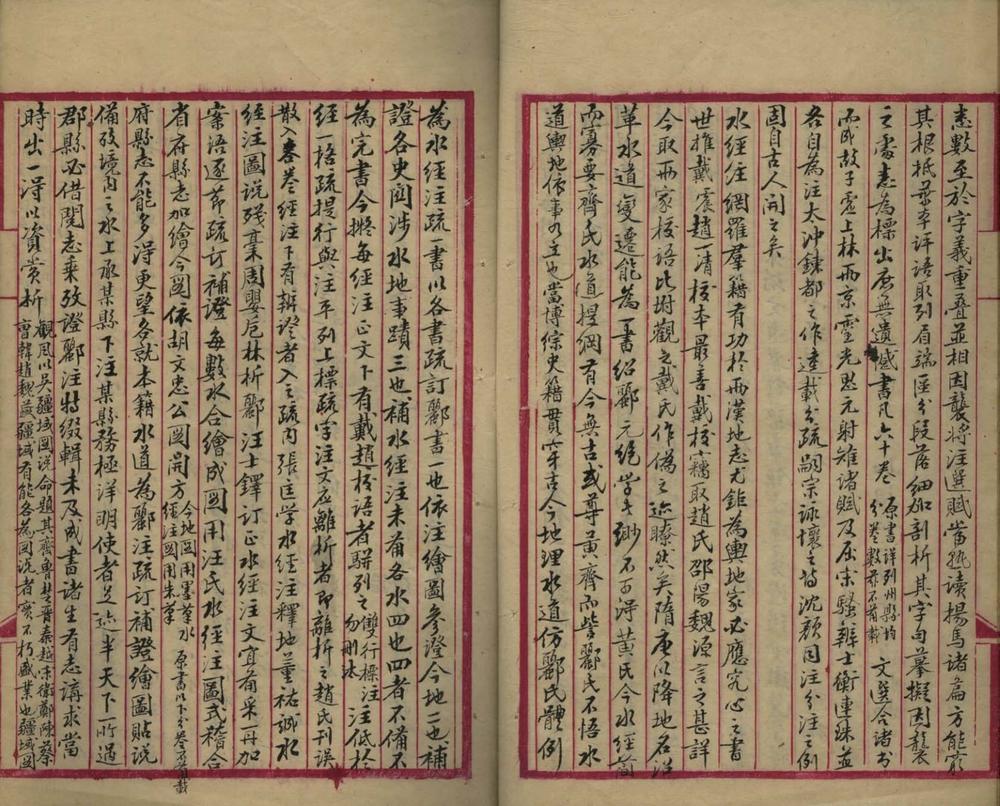 志數至於字義重疊並相因襲將注選賦當熟讀揚馬諸篇方能窮
其根柢葉本評語取列眉端區分段落細加剖析其字句摹擬因襲
之處悉為標出庶無遺憾書凡六十卷 原書詳列州縣均分卷數茲不前載 文選今諸書
而成故子虛上林兩京靈光思元射雉諸賦及屈宋騷辨士衡連珠並
各自為注太沖錬都之作達載分疏嗣宗詠懷之詩沈顏同注分注之例
固自古人開之矣
水經注網羅羣籍有功於兩漢地志尤鉅為輿地家必應究心之書
世推戴震趙一清校本最善戴校竊取趙氏邵陽魏源言之甚詳
今取兩家校語比坿觀之戴氏作偽之迹瞭然矣隋唐以降地名沿
革水道變遷能為一書紹酈元絕學者缈不可得黃氏今水經簡
而寡要齊氏水道提綱有今無古或尊黃齊而訾酈氏不悟水
道輿地依事而立也當博綜史籍貫穿古今地理水道仿酈氏體例
為水經注疏一書以各書疏訂酈書一也依注繪圖參證今地二也補
證各史図涉水地事蹟三也補水經注未葡各水四也四者不備不
為完書今擬每經注正文下有戴趙校語者駢列之 雙行標注勿刪沐 注低於
經一格疏提行與注平列上標疏字注文應離析者即離析之趙氏刊誤
散入各卷經注下有辨證者入之疏内張匡学水經注釋地董祐誠水
經注圖說殘稾周嬰卮林析酈汪士鐸訂正水經注文宜葡采一再加
案語逐節疏訂補證每數水合繪成圖用汪氏水經注圖式稽合
省府縣志加繪今図依胡文忠公図開方 今地図用墨筆水經注図用朱筆 原書以下分卷不葡載
府縣志不能多得更望各就本籍水道為酈注疏訂補證繪圖貼說
備攷境内之水上承某縣下注某縣務極詳明使者足迹半天下所過
郡縣必借閱志乘攷證酈注特綴輯未及成書諸生有志講求當
時出一得以資賞析 觀風以吳疆域図說命題其齊魯楚晉秦越宋衛鄭陳蔡曹韓趙魏燕疆域有能各為図說者實不朽盛業也疆域図